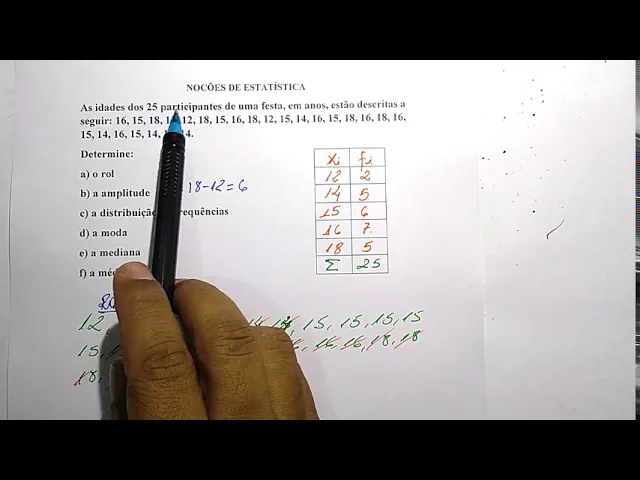 NOCÕES DE ESTATÍSTICA
As idades dos 25 participantes de uma festa, em anos, estão descritas a
seguir: 16, 15, 18, 12, 18, 15, 16, 18, 12, 15, 14, 16, 15, 18, 16, 18, 16,
15, 14, 16, 15, 14,
Determine:
a) o rol
b) a amplitude 18-12=6
c) a distribuição frequências
d) a moda
e) a mediana
f) a
xi fi
12 2
14 5
15 6
16 7
18 5
Σ 25
12, 14, 15, 15, 15, 15
15, 16, 16, 18, 18
18,